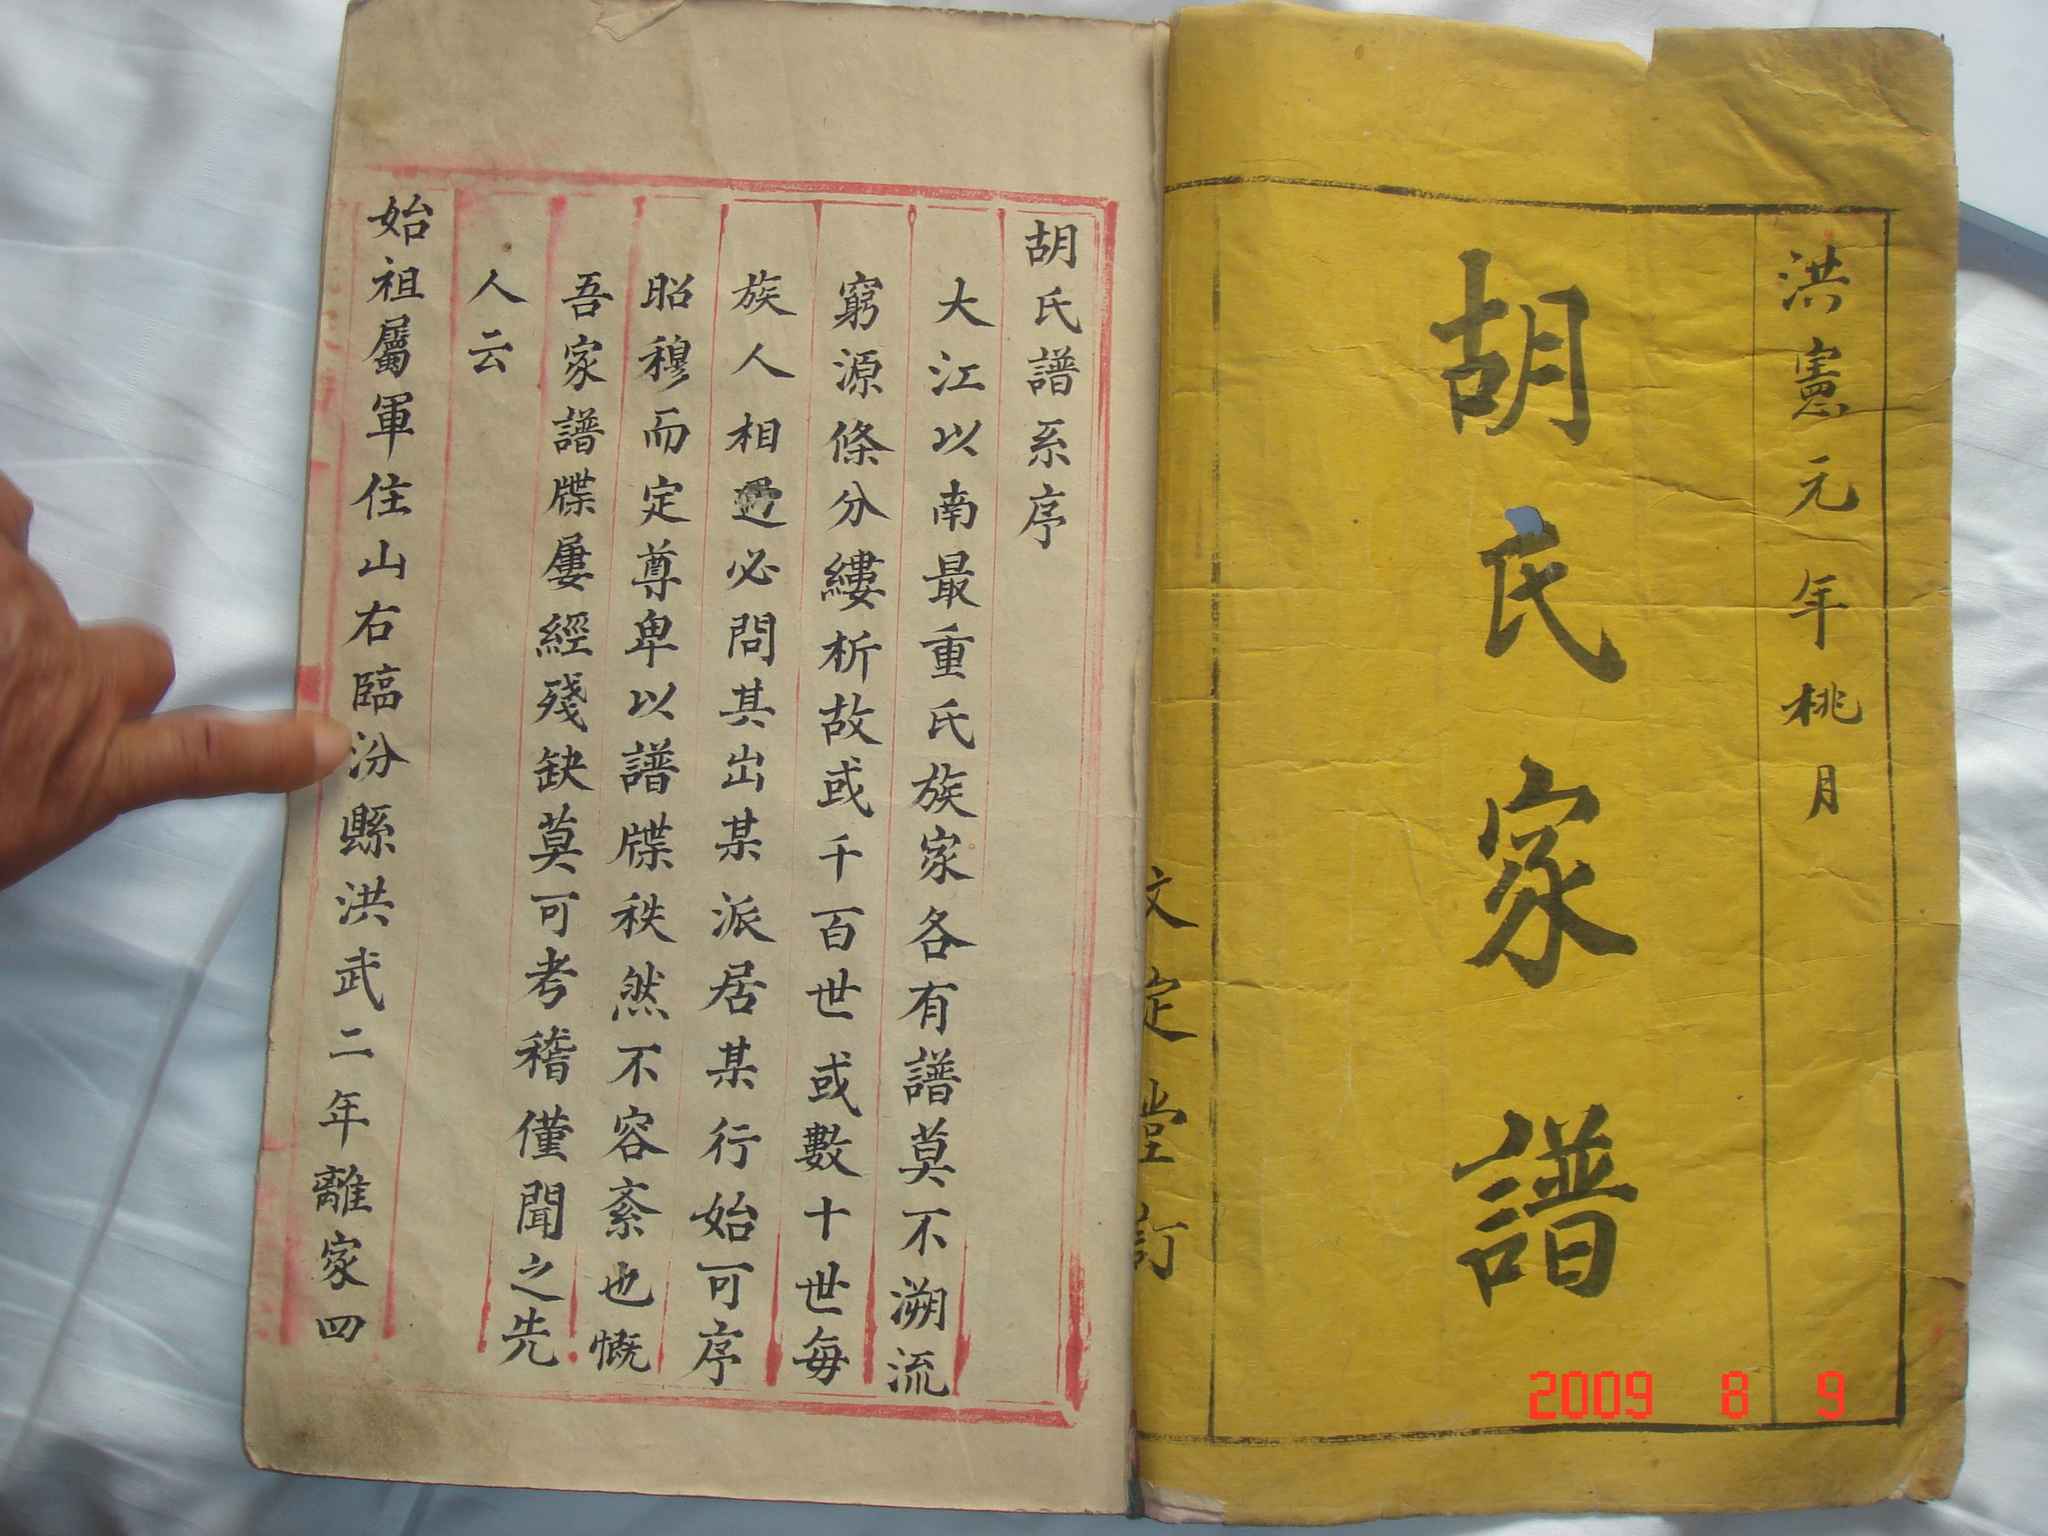 洪憲元年桃月
胡氏家譜
文定堂訂
胡氏譜系序
大江以南最重氏族家各有譜莫不溯流
窮源條分縷析故或千百世或數十世每
族人相遇必問其出某派居某行始可序
昭穆而定尊卑以譜牒秩然不容紊也慨
吾家譜牒屢經殘缺莫可考稽僅聞之先
人云
始祖屬軍住山右臨汾縣洪武二年離家四
2009 8 9